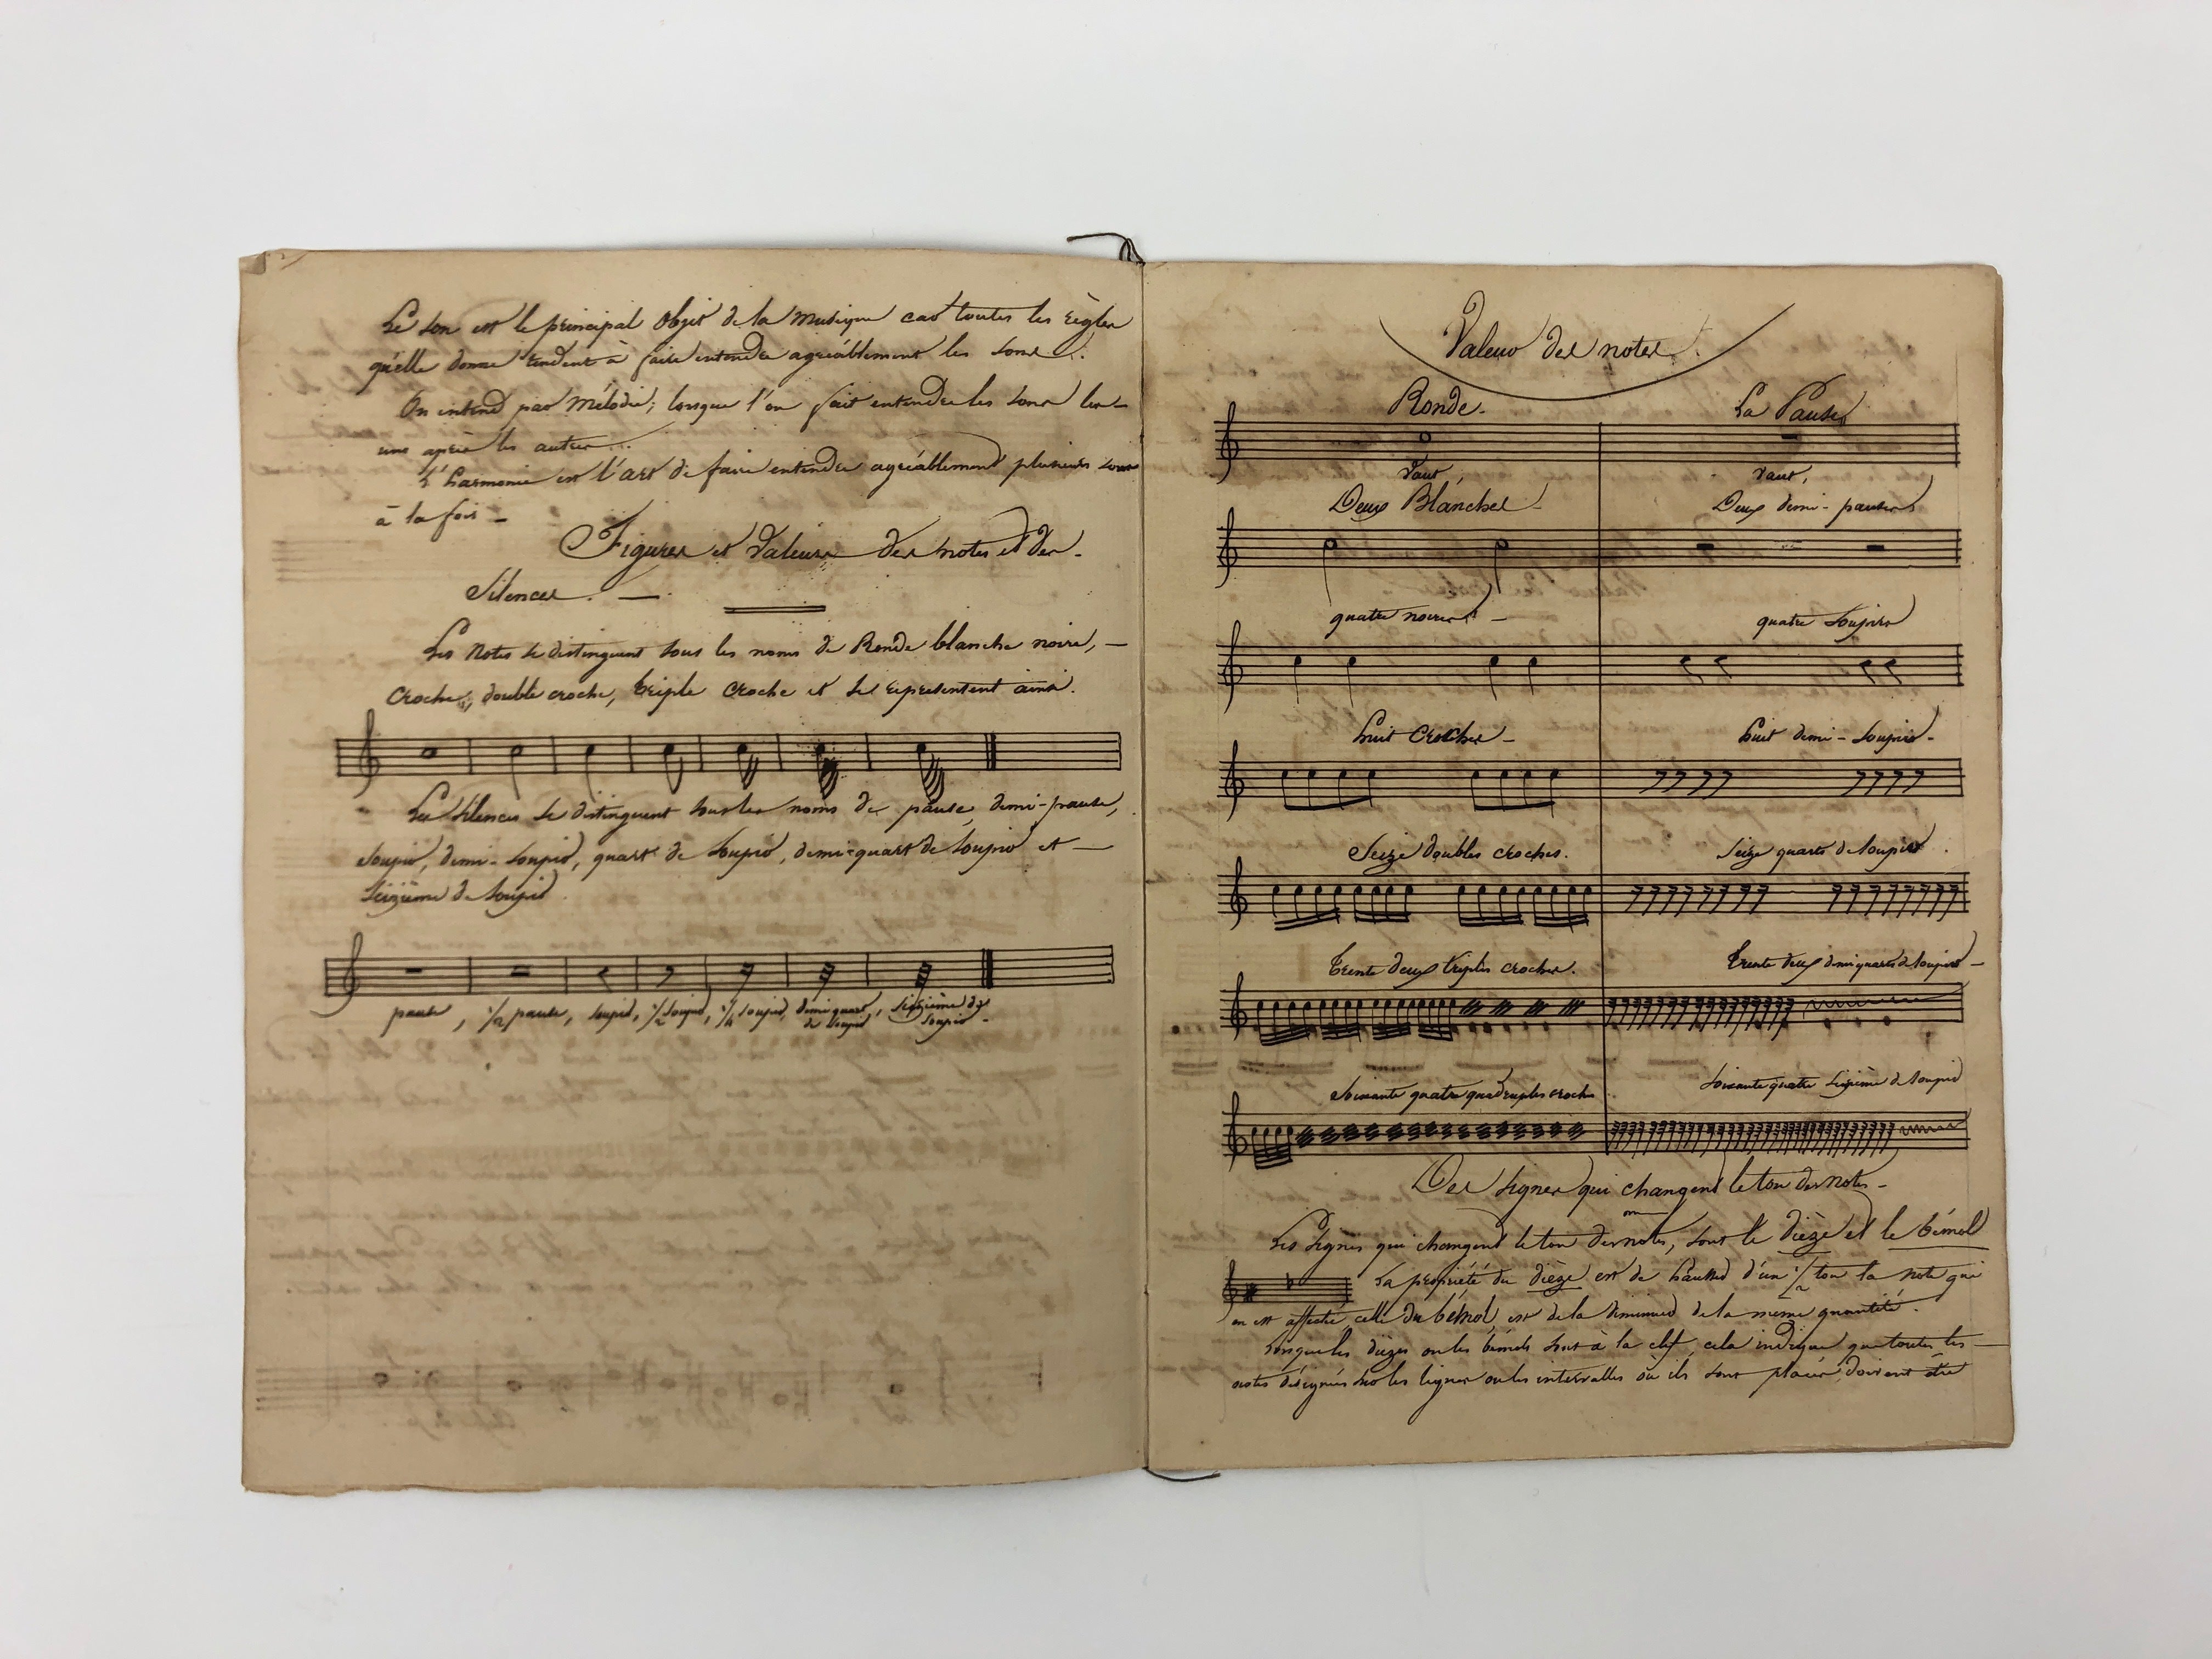 Le son est le principal Objet de la Musique car toutes les règles
qu'elle donne tendent à faire entendre agréablement les sons.
On entend par Mélodie; lorsque l'on fait entendre les sons les
uns après les autres.
L'harmonie est l'art de faire entendre agréablement plusieurs sons
à la fois
Figures et Valeurs des notes et des
Silences.
Les Notes se distinguent sous les noms de Ronde blanche noire,
croche, double croche, triple croche et se représentent ainsi.
Les Silences se distinguent sous les noms de pause, demi-pause,
soupir, demi-soupir, quart de soupir, demi-quart de soupir et
seizième de soupir
pause, 1/2 pause, soupir, 1/2 soupir, 1/4 soupir, demi quart, seizième de
de soupir soupir
Valeur des notes.
Ronde. La Pause
Vaut, vaut,
Deux Blanches Deux demi-pauses
quatre noires quatre soupirs
huit Croches huit demi-soupirs
Seize doubles croches. Seize quarts de soupirs.
Trente deux triples croches. Trente deux demi quarts de soupirs
Soixante quatre quadruples croches Soixante quatre seizième de soupir
Des signes qui changent le ton des notes
Les Signes qui changent le ton des notes, sont le dièze et le bémol
La propriété du dièze est de hausser d'un 1/2 ton la note qui
en est affectée, celle du bémol, est de la diminuer de la même quantité.
Lorsque les dièzes ou les bémols sont à la clef, cela indique que toutes les
notes désignées sur les lignes ou les intervalles où ils sont placés, doivent être